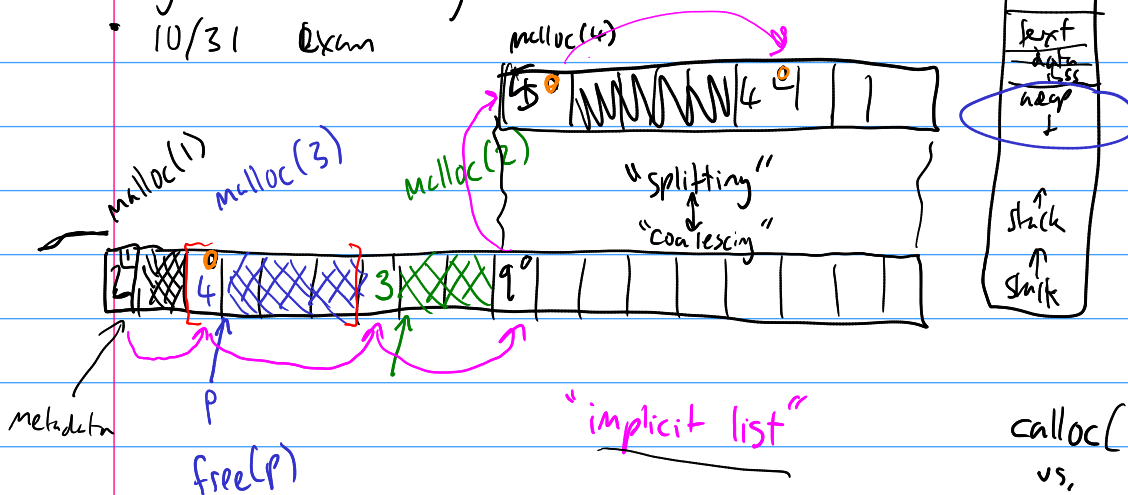 10/31 exam
malloc(4)
text
data
bss
heap
↓
5 0 4 0
malloc(1)
malloc(3)
malloc(2)
"splitting"
↕
"coalescing"
↑
stack
↑
stack
2 1 4 0 3 1 9 0
metadata
p
free(p)
"implicit list"
calloc(
vs.